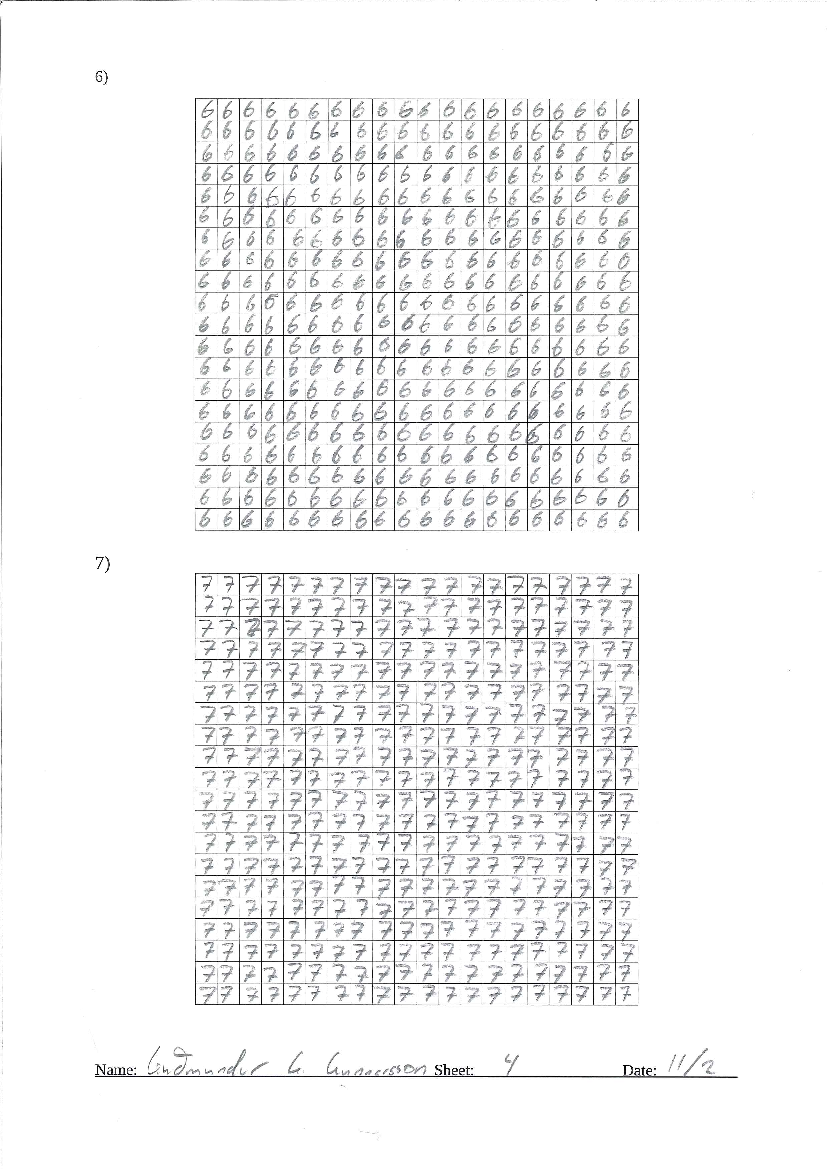 6)
6 6 6 6 6 6 6 6 6 6 6 6 6 6 6 6 6 6 6 6
6 6 6 6 6 6 6 6 6 6 6 6 6 6 6 6 6 6 6 6
6 6 6 6 6 6 6 6 6 6 6 6 6 6 6 6 6 6 6 6
6 6 6 6 6 6 6 6 6 6 6 6 6 6 6 6 6 6 6 6
6 6 6 6 6 6 6 6 6 6 6 6 6 6 6 6 6 6 6 6
6 6 6 6 6 6 6 6 6 6 6 6 6 6 6 6 6 6 6 6
6 6 6 6 6 6 6 6 6 6 6 6 6 6 6 6 6 6 6 6
6 6 6 6 6 6 6 6 6 6 6 6 6 6 6 6 6 6 6 6
6 6 6 6 6 6 6 6 6 6 6 6 6 6 6 6 6 6 6 6
6 6 6 6 6 6 6 6 6 6 6 6 6 6 6 6 6 6 6 6
6 6 6 6 6 6 6 6 6 6 6 6 6 6 6 6 6 6 6 6
6 6 6 6 6 6 6 6 6 6 6 6 6 6 6 6 6 6 6 6
6 6 6 6 6 6 6 6 6 6 6 6 6 6 6 6 6 6 6 6
6 6 6 6 6 6 6 6 6 6 6 6 6 6 6 6 6 6 6 6
6 6 6 6 6 6 6 6 6 6 6 6 6 6 6 6 6 6 6 6
6 6 6 6 6 6 6 6 6 6 6 6 6 6 6 6 6 6 6 6
6 6 6 6 6 6 6 6 6 6 6 6 6 6 6 6 6 6 6 6
6 6 6 6 6 6 6 6 6 6 6 6 6 6 6 6 6 6 6 6
6 6 6 6 6 6 6 6 6 6 6 6 6 6 6 6 6 6 6 6
6 6 6 6 6 6 6 6 6 6 6 6 6 6 6 6 6 6 6 6
7)
7 7 7 7 7 7 7 7 7 7 7 7 7 7 7 7 7 7 7 7
7 7 7 7 7 7 7 7 7 7 7 7 7 7 7 7 7 7 7 7
7 7 7 7 7 7 7 7 7 7 7 7 7 7 7 7 7 7 7 7
7 7 7 7 7 7 7 7 7 7 7 7 7 7 7 7 7 7 7 7
7 7 7 7 7 7 7 7 7 7 7 7 7 7 7 7 7 7 7 7
7 7 7 7 7 7 7 7 7 7 7 7 7 7 7 7 7 7 7 7
7 7 7 7 7 7 7 7 7 7 7 7 7 7 7 7 7 7 7 7
7 7 7 7 7 7 7 7 7 7 7 7 7 7 7 7 7 7 7 7
7 7 7 7 7 7 7 7 7 7 7 7 7 7 7 7 7 7 7 7
7 7 7 7 7 7 7 7 7 7 7 7 7 7 7 7 7 7 7 7
7 7 7 7 7 7 7 7 7 7 7 7 7 7 7 7 7 7 7 7
7 7 7 7 7 7 7 7 7 7 7 7 7 7 7 7 7 7 7 7
7 7 7 7 7 7 7 7 7 7 7 7 7 7 7 7 7 7 7 7
7 7 7 7 7 7 7 7 7 7 7 7 7 7 7 7 7 7 7 7
7 7 7 7 7 7 7 7 7 7 7 7 7 7 7 7 7 7 7 7
7 7 7 7 7 7 7 7 7 7 7 7 7 7 7 7 7 7 7 7
7 7 7 7 7 7 7 7 7 7 7 7 7 7 7 7 7 7 7 7
7 7 7 7 7 7 7 7 7 7 7 7 7 7 7 7 7 7 7 7
7 7 7 7 7 7 7 7 7 7 7 7 7 7 7 7 7 7 7 7
7 7 7 7 7 7 7 7 7 7 7 7 7 7 7 7 7 7 7 7
Name: Guðmundur G. Gunnarsson Sheet: 4 Date: 11/2